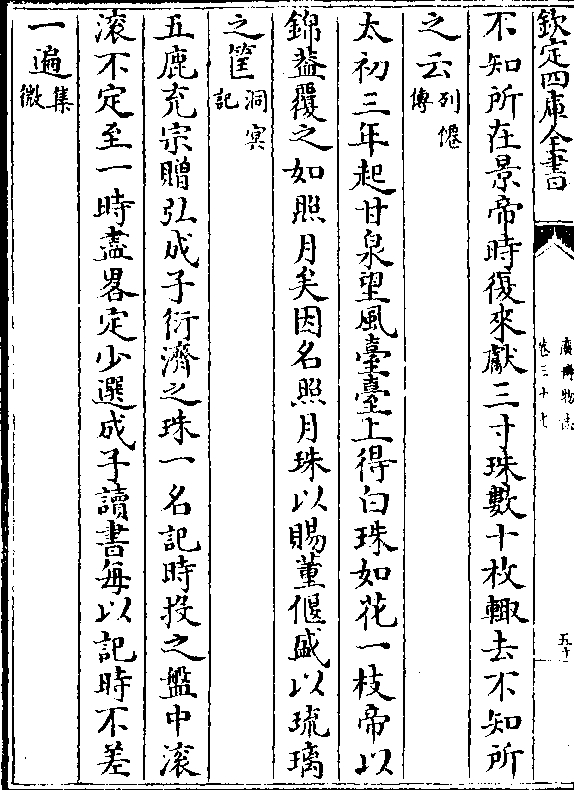 欽定四庫全書
廣博物志
卷三十七
五十
不知所在景帝時復來獻三寸珠數十枚輙去不知所
之云列僊傳
太初三年起甘泉望風臺臺上得白珠如花一枝帝以
錦葢覆之如照月矣因名照月珠以賜董偃盛以琉璃
之筐洞冥記
五鹿充宗贈弘成子衍濟之珠一名記時投之盤中滚
滚不定至一時盡畧定少選成子讀書每以記時不差
一遍集微